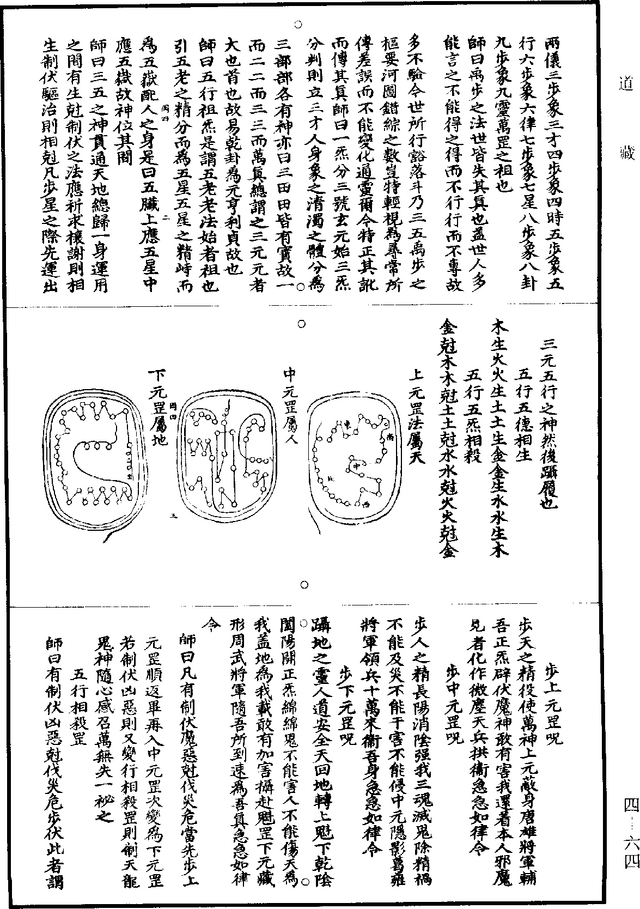 道藏
兩儀三步象三才四步象四時五步象五
行六步象六律七步象七星八步象八卦
九步象九靈萬罡之祖也
師曰禹步之法世皆失其真也蓋世人多
能言之不能得之得而不能行行而不專故
多不驗今世所行豁落斗乃三五禹步之
樞要河圖錯綜之數豈特輕視為尋常所
傳差誤而不能變化通靈爾今特正其訛
而傳其真師曰一炁分三號玄元始三炁
分判則立三才人身象之清濁之體分為
三部部各有神亦曰三田田皆有寶故一
而二二而三三而萬真總謂之三元元者
大也首也故易乾卦為元亨利貞故也
師曰五行祖炁是謂五老老法始者祖也
引五老之精分而為五星五星之精峙而
為五嶽配人之身是曰五臟上應五星中
應五嶽故神位其間
師曰三五之神貫通天地總歸一身運用
之間有生剋制伏之法應祈求禳謝則相
生制伏驅治則相剋凡步星之際先運出
三元五行之神然後躡履也
五行五德相生
木生火火生土土生金金生水水生木
五行五炁相殺
金剋木木剋土土剋水水剋火火剋金
上元罡法屬天
中元罡屬人
下元罡屬地
步上元罡呪
步天之精役使萬神上元敵身唐雄將軍輔
吾正炁辟伏魔神敢有害我還着本人邪魔
見者化作微塵天兵拱衛急急如律令
步中元罡呪
步人之精長陽消陰強我三魂滅鬼除精禍
不能及災不能干害不能侵中元隱影葛雍
將軍領兵十萬來衛吾身急急如律令
步下元罡呪
躡地之靈人道安全天回地轉上魁下乾陰
闔陽開正炁綿綿鬼不能害人不能傷天為
我蓋地為我載敢有加害攝赴魁罡下元藏
形周武將軍隨吾所到速為吾真急急如律
令
師曰凡有制伏魔惡剋伐災危當先步上
元罡順返畢再入中元罡次變為下元罡
若制伏凶惡則又變行相殺罡則制天龍
鬼神隨心感召萬無失一祕之
五行相殺罡
師曰有制伏凶惡剋伐災危步伏此者謂
四—六四